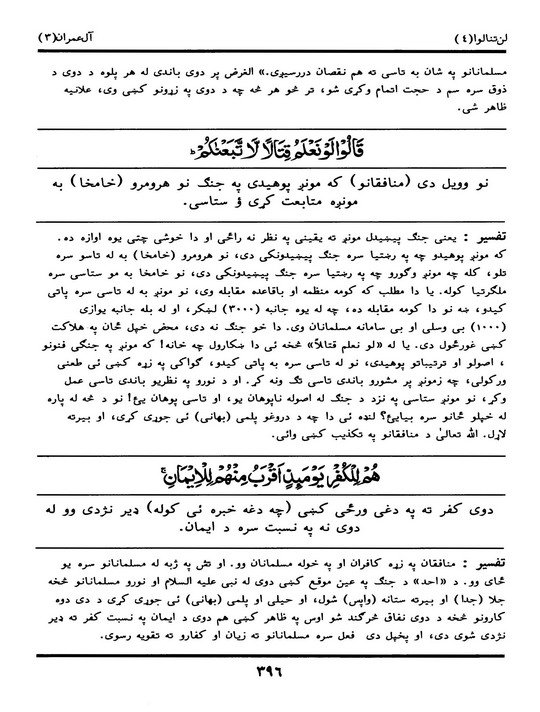 لن تنالوا(٤)
آل عمران(٣)
مسلمانانو په شان به تاسې ته هم نقصان دررسېږي.» الغرض پر دوی باندې له هر پلوه د دوی د
ذوق سره سم د حجت اتمام وکړی شو، تر څو هر څه چه د دوی په زړونو کښې وی، علانیه
ظاهر شي.
قَالُوا لَوْ نَعْلَمُ قِتَالًا لَّا تَّبَعْنٰكُمْ ؕ
نو وویل دی (منافقانو) که مونږ پوهیدی په جنګ نو هرومرو (خامخا) به
مونږه متابعت کړی ؤ ستاسې.
تفسیر : یعنې جنګ پیښیدل مونږ ته یقینې په نظر نه راځی او دا خوشې چتې یوه اوازه ده.
که مونږ پوهیدو چه په رښتیا سره جنګ پیښیدونکی دی، نو هرومرو (خامخا) به له تاسو سره
تلو، کله چه مونږ وګورو چه په رښتیا سره جنګ پیښیدونکی دی، نو خامخا به مو ستاسې سره
ملګرتیا کوله. یا دا مطلب که کومه منظمه او باقاعده مقابله وی، نو مونږ به له تاسې سره پاتې
کیدو، ښه نو دا کومه مقابله ده، چه له یوه جانبه (۳۰۰۰) لښکر، او له بله جانبه یوازې
(۱۰۰۰) بې وسلې او بې سامانه مسلمانان وی. دا خو جنګ نه دی، محض خپل ځان په هلاکت
کښې غورځول دی. یا له «لو نعلم قتالاً» څخه ئې دا ښکارول چه خانه! که مونږ په جنګی فنونو
، اصولو او ترتیباتو پوهیدی، نو له تاسې سره به پاتې کیدو، ګواکې په زړه کښې ئې طعنې
ورکولې، چه زمونږ پر مشورو باندې تاسې تګ ونه کړ. او د نورو په نظریو باندې تاسې عمل
وکړ، نو مونږ ستاسې په نزد د جنګ له اصوله ناپوهان یو، او تاسې پوهان یئ! نو د څه له پاره
له خپلو ځانو سره بیایئ؟ لنډه ئې دا چه د دروغو پلمې (بهانې) ئې جوړې کړې، او بیرته
لاړل. الله تعالیٰ د منافقانو په تکذیب کښې وائي.
هُمْ لِلْكُفْرِ يَوْمَىِٕذٍ اَقْرَبُ مِنْهُمْ لِلْاِيْمَانِ ۚ
دوی کفر ته په دغې ورځې کښې (چه دغه خبره ئې کوله) ډیر نژدې وو له
دوی نه په نسبت سره د ایمان.
تفسیر : منافقان په زړه کافران او په خوله مسلمانان وو. او تش په ژبه له مسلمانانو سره یو
ځای وو. د «احد» د جنګ په عین موقع کښې دوی له نبي علیه السلام او نورو مسلمانانو څخه
جلا (جدا) او بیرته ستانه (واپس) شول، او حیلې او پلمې (بهانې) ئې جوړې کړې د دې دوه
کارونو څخه د دوی نفاق څرګند شو اوس په ظاهر کښې هم دوی د ایمان په نسبت کفر ته ډیر
نژدې شوی دی، او پخپل دې فعل سره مسلمانانو ته زیان او کفارو ته تقویه رسوی.
٣٩٦